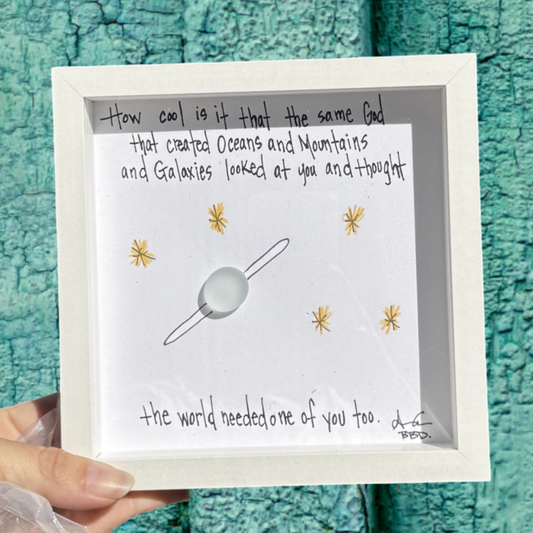 How cool is it that the same God
that created Oceans and Mountains
and Galaxies looked at you and thought
the world needed one of you too.
BBD.